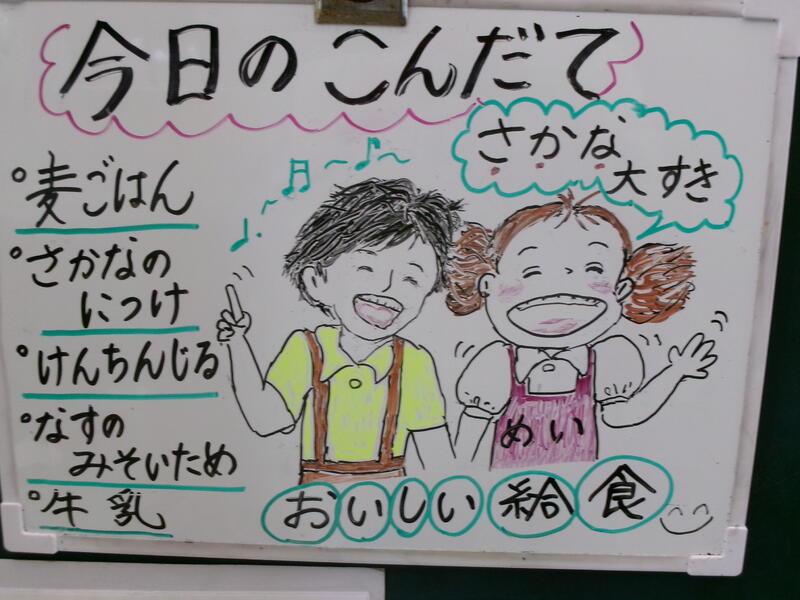 今日のこんだて
さかな
大すき
麦ごはん
さかなの
につけ
けんちんじる
なすの
みそいため
牛乳
めい
おいしい給食